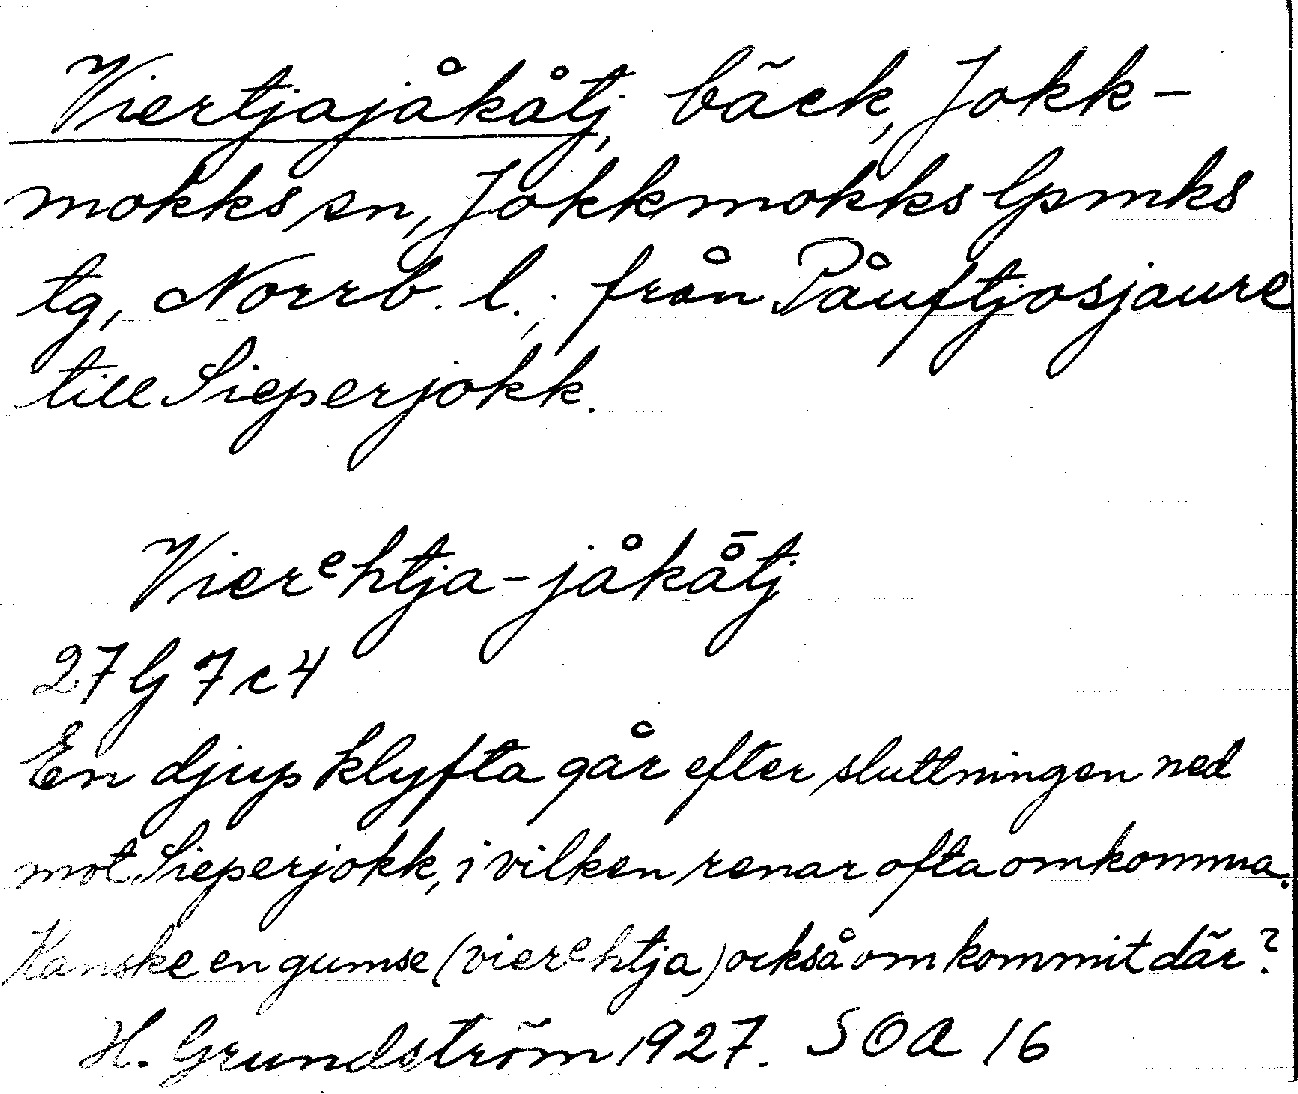 Viertjajåkåtj, bäck, Jokk-
mokks sn, Jokkmokks lpmks
tg, Norrb. l., från Påuftjosjaure
till Sieperjokk.
Vierᵉhtja-jåkå̄tj
27 G 7 c 4
En djup klyfta går efter sluttningen ned
mot Sieperjokk, i vilken renar ofta omkomma.
Kanske en gumse (vierᵉhtja) också omkommit där?
H. Grundström 1927. SOA 16